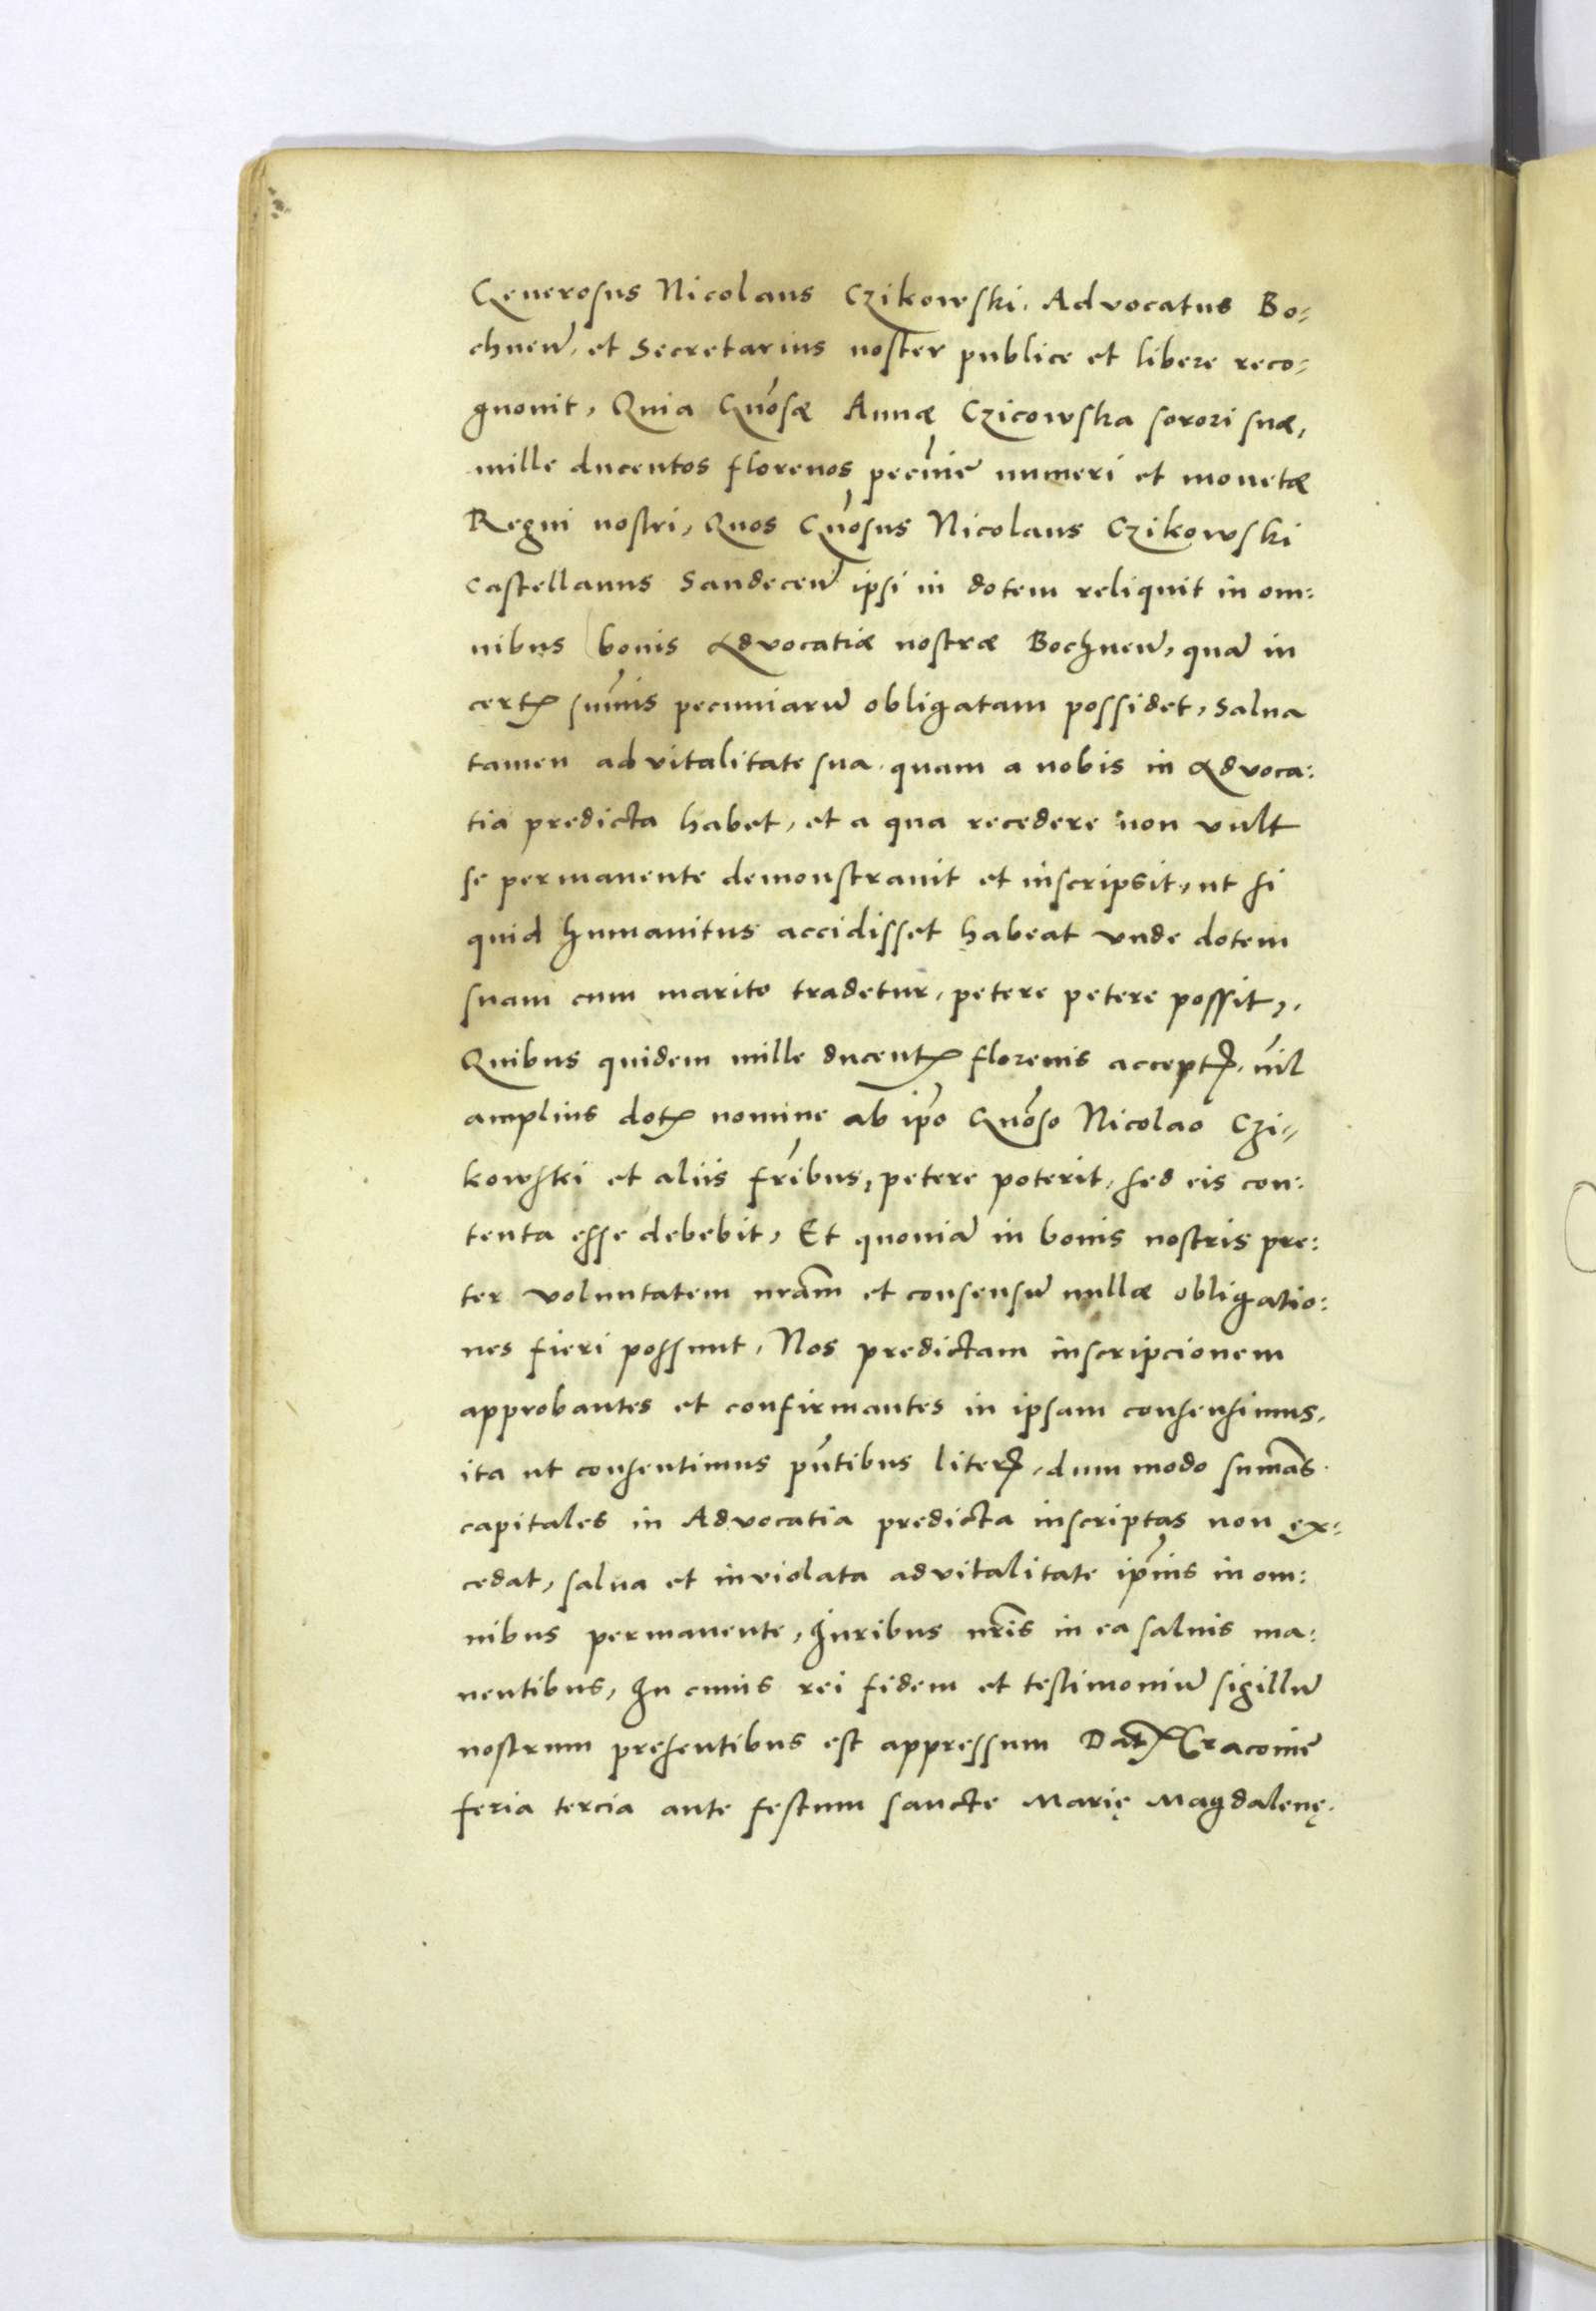 Generosus Nicolaus Czikowski. Advocatus Bo-
chnen̄. et Secretarius noster publice et libere reco-
gnouit, Quia Gn̄osæ Annæ Czicowska sorori suæ,
mille ducentos florenos pecūnie numeri et monetæ
Regni nostri, Quos Gn̄osus Nicolaus Czikowski
Castellanus Sandecen̄ ipsi in dotem reliquit in om:
nibus bonis Advocatiæ nostræ Bochnen̄, quā in
certꝭ sum̄is pecuniarū obligatam possidet, salua
tamen advitalitate sua quam a nobis in Advoca:
tia predicta habet, et a qua recedere non vult
se permanente demonstrauit et inscripsit, ut si
quid humanitus accidisset habeat vnde dotem
suam cum marito tradetur, petere petere possit,.
Quibus quidem mille ducentꝭ florenis acceptꝭ, nīl
amplius dotꝭ nomine ab ip̄o Gn̄oso Nicolao Czi-
kowski et aliis fr̄ibus, petere poterit, sed eis con:
tenta esse debebit, Et quoniā in bonis nostris pre:
ter voluntatem nr̄am et consensū nullæ obligatio:
nes fieri possunt, Nos predictam inscripcionem
approbantes et confirmantes in ipsam consensimus,
ita ut consentimus pn̄tibus literꝭ, dum modo sum̄as
capitales in Advocatia predicta inscriptas non ex-
cedat, salua et inviolata advitalitate ip̄ius in om:
nibus permanente, Juribus nr̄is in ea saluis ma:
nentibus, In cuius rei fidem et testimoniū sigillū
nostrum presentibus est appressum Datꝭ Cracouie
feria tercia ante festum sancte Marię Magdalenę.